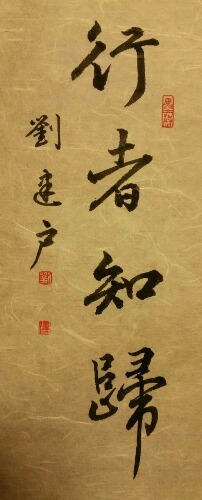 行者知歸
劉建戶